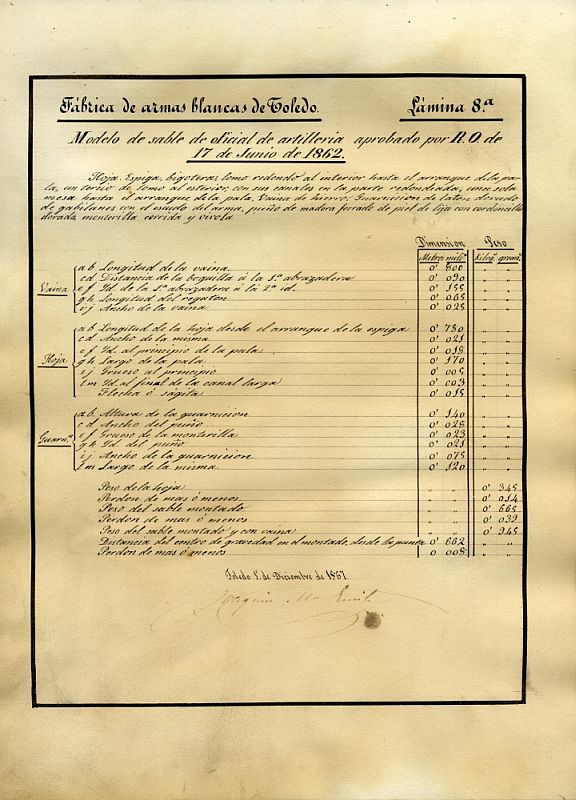 Fábrica de armas blancas de Toledo. Lámina 8.ª
Modelo de sable de oficial de artilleria aprobado por R.O. de
17 de Junio de 1862.
Hoja. Espiga, bigotera, lomo redondo al interior hasta el arranque de la pa-
la, un tercio de lomo al esterior, con sus canales en la parte redondeada, una sola
mesa hasta el arranque de la pala, Vaina de hierro. Guarnicion de laton dorado
de gabilanes con el escudo del arma, puño de madera forrado de piel de lija con cordoncillo
dorado, monterilla corrida y virola
Dimension Peso
Metro mil.s Kilog.s gram.s
Vaina
a b Longitud de la vaina. 0' 800 " "
c d Distancia de la boquilla á la 1.ª abrazadera 0' 090 " "
e f Id. de la 1.ª abrazadera á la 2.ª id. 0' 155 " "
g h Longitud del regaton 0' 065 " "
i j Ancho de la vaina 0' 025 " "
Hoja
a b Longitud de la hoja desde el arranque de la espiga 0' 780 " "
c d Ancho de la misma 0' 021 " "
e f Id. al principio de la pala 0' 018 " "
g h Largo de la pala 0' 170 " "
i j Grueso al principio 0' 005 " "
l m Id. al final de la canal larga 0' 003 " "
Flecha ó sagita 0' 015 " "
Guarn.n
a b Altura de la guarnicion 0' 140 " "
c d Ancho del puño 0' 028 " "
e f Grueso de la monterilla 0' 023 " "
g h Id. del puño 0' 021 " "
i j Ancho de la guarnicion 0' 075 " "
l m Largo de la misma 0' 120 " "
Peso de la hoja " " 0' 345
Perdon de mas ó menos " " 0' 014
Peso del sable montado " " 0' 665
Perdon de mas ó menos " " 0' 039
Peso del sable montado y con vaina " " 0' 945
Distancia del centro de gravedad en el montado, desde la punta 0' 662 " "
Perdon de mas ó menos 0' 008 " "
Toledo 1.º de Diciembre de 1867.
Joaquin M.a